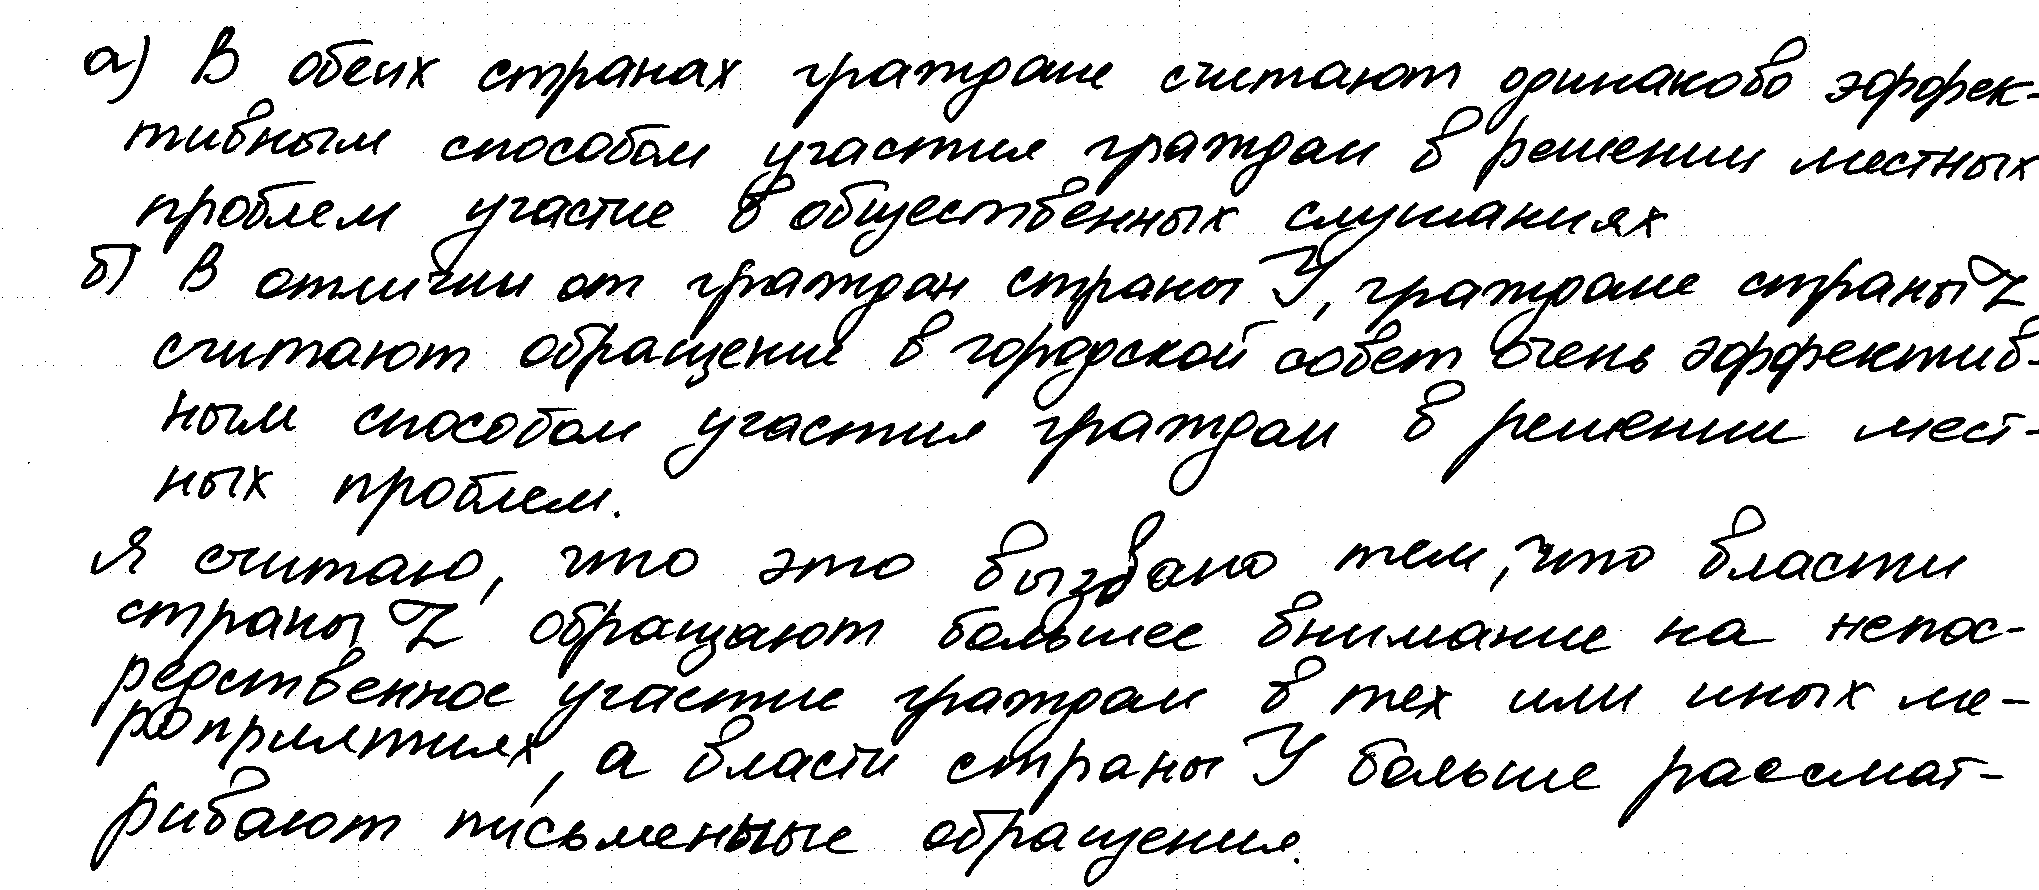 а) В обеих странах граждане считают одинаково эффек-
тивным способом участия граждан в решении местных
проблем участие в общественных слушаниях
б) В отличии от граждан страны У, граждане страны Z
считают обращение в городской совет очень эффектив-
ным способом участия граждан в решении мест-
ных проблем.
Я считаю, что это вызвано тем, что власти
страны Z обращают большее внимание на непос-
редственное участие граждан в тех или иных ме-
роприятиях, а власти страны У больше рассмат-
ривают письменные обращения.